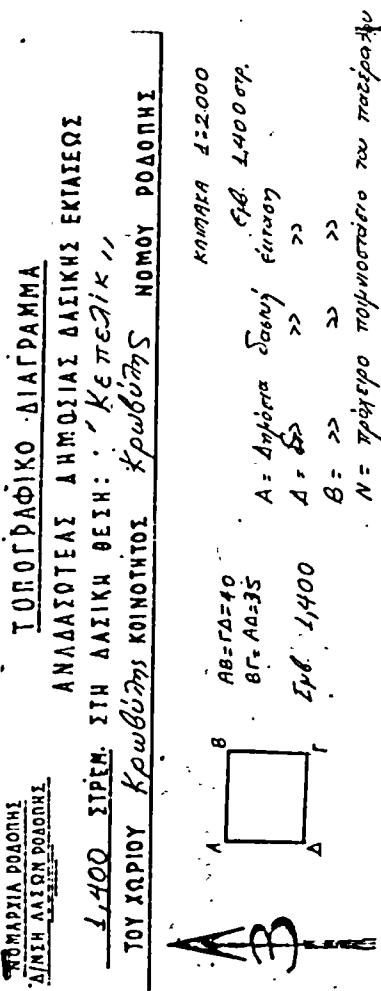 ΝΟΜΑΡΧΙΑ ΡΟΔΟΠΗΣ
Δ/ΝΣΗ ΔΑΣΩΝ ΡΟΔΟΠΗΣ
ΤΟΠΟΓΡΑΦΙΚΟ ΔΙΑΓΡΑΜΜΑ
ΑΝΑΔΑΣΩΤΕΑΣ ΔΗΜΟΣΙΑΣ ΔΑΣΙΚΗΣ ΕΚΤΑΣΕΩΣ
1,400 ΣΤΡΕΜ. ΣΤΗ ΔΑΣΙΚΗ ΘΕΣΗ: "Κεπελίκ"
ΤΟΥ ΧΩΡΙΟΥ Κρωβύλης ΚΟΙΝΟΤΗΤΟΣ Κρωβύλης ΝΟΜΟΥ ΡΟΔΟΠΗΣ
ΚΛΙΜΑΚΑ 1:2000
Α Β
Δ Γ
ΑΒ=ΓΔ=40
ΒΓ=ΑΔ=35
Εμβ. 1,400
Α = Δημόσια δασική έκταση εμβ. 1,400 στρ.
Δ = >> >> >>
Β = >> >> >>
Ν = πρόχειρο ποιμνιοστάσιο του πατέρα του
Β